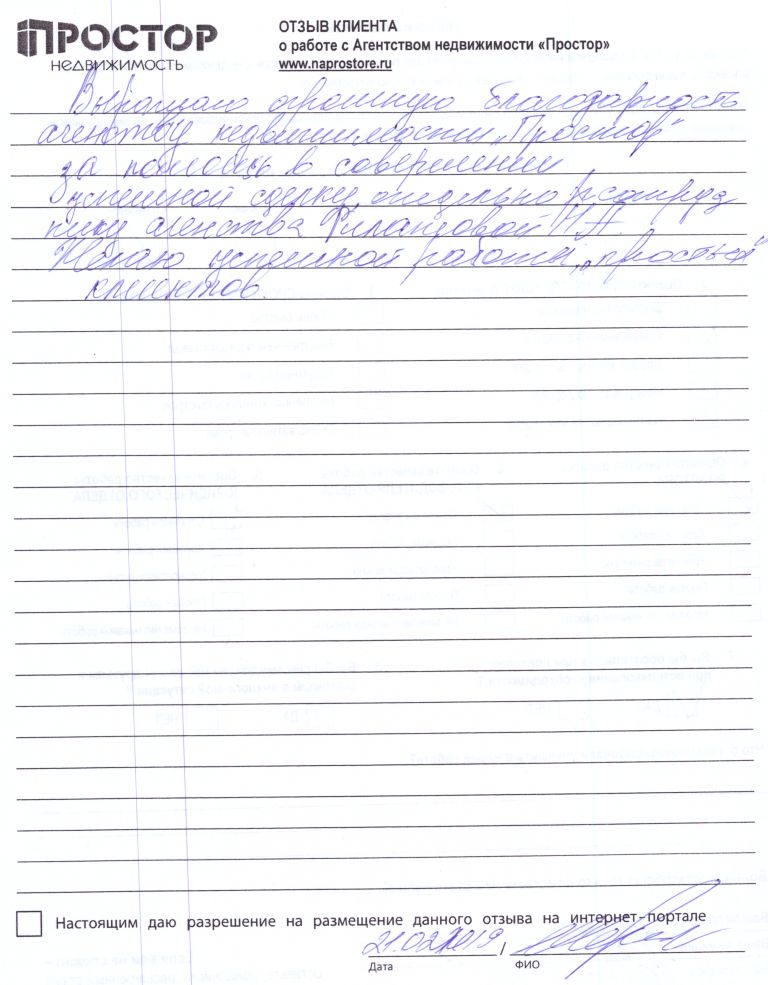 ПРОСТОР
НЕДВИЖИМОСТЬ
ОТЗЫВ КЛИЕНТА
о работе с Агентством недвижимости «Простор»
www.naprostore.ru
Выражаю огромную благодарность
агенству недвижимости „Простор“
за помощь в совершении
успешной сделки, отдельно сотруд
нику агенства Филатовой Н.А.
Желаю успешной работы, „простых“
клиентов.
Настоящим даю разрешение на размещение данного отзыва на интернет-портале
21.02.2019 /
Дата
ФИО